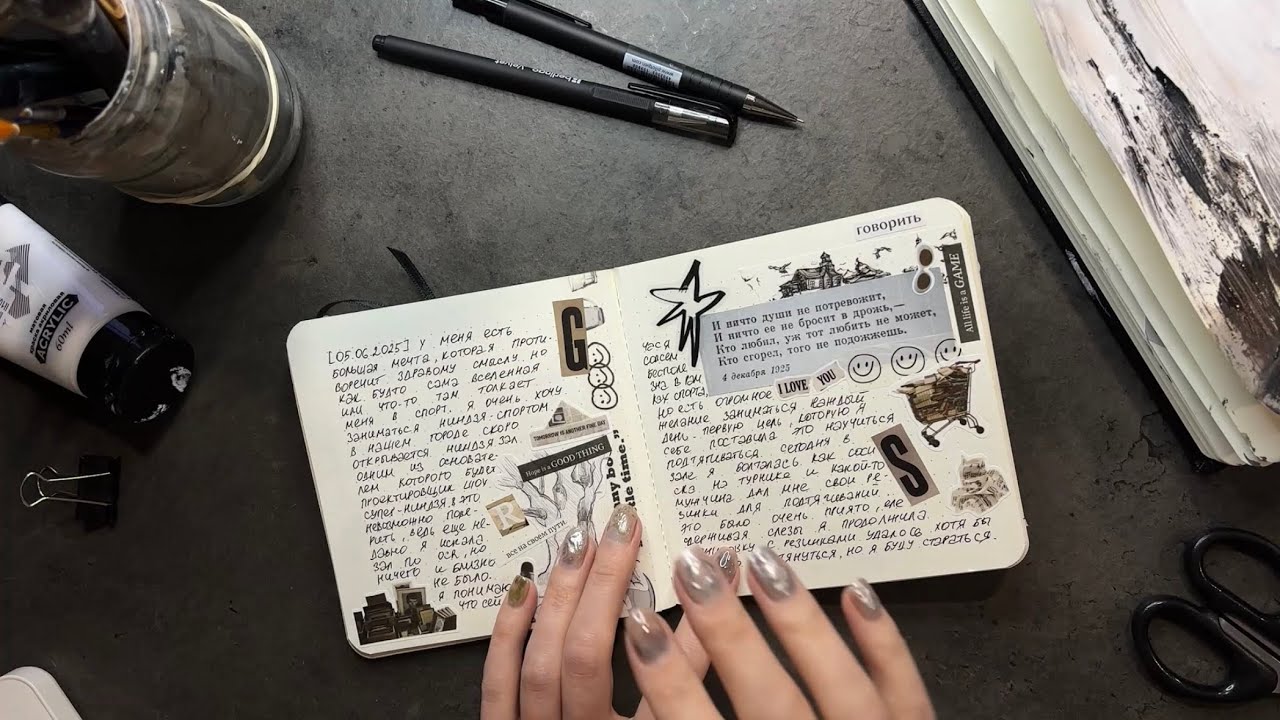 berlingo Velvet
ACRYLIC
60ml
[05.06.2025] У МЕНЯ ЕСТЬ
БОЛЬШАЯ МЕЧТА, КОТОРАЯ ПРОТИ-
ВОРЕЧИТ ЗДРАВОМУ СМЫСЛУ. НО
КАК БУДТО САМА ВСЕЛЕННАЯ
ИЛИ ЧТО-ТО ТАМ ТОЛКАЕТ
МЕНЯ В СПОРТ. Я ОЧЕНЬ ХОЧУ
ЗАНИМАТЬСЯ НИНДЗЯ-СПОРТОМ.
В НАШЕМ ГОРОДЕ СКОРО
ОТКРЫВАЕТСЯ НИНДЗЯ ЗАЛ.
ОДНИМ ИЗ ОСНОВАТЕ-
ЛЕМ КОТОРОГО БУДЕТ
ПРОЕКТИРОВЩИК ШОУ
СУПЕР-НИНДЗЯ, В ЭТО
НЕВОЗМОЖНО ПОВЕ-
РИТЬ, ВЕДЬ ЕЩЕ НЕ-
ДАВНО Я ИСКАЛА
ЗАЛ ПО OCR, НО
НИЧЕГО И БЛИЗКО
НЕ БЫЛО.
Я ПОНИМАЮ
ЧТО СЕЙ
G
TOMORROW IS ANOTHER FINE DAY
Hope is a GOOD THING
R
все на своем пути
ny bo
tle time.”
говорить
И ничто души не потревожит,
И ничто ее не бросит в дрожь,—
Кто любил, уж тот любить не может,
Кто сгорел, того не подожжешь.
4 декабря 1925
All life is a GAME
I LOVE YOU
ЧАС Я
СОВСЕМ
БЕСПОЛЕ
ЗНА В
КАХ СПОРТА,
НО ЕСТЬ ОГРОМНОЕ
ЖЕЛАНИЕ ЗАНИМАТЬСЯ КАЖДЫЙ
ДЕНЬ. ПЕРВУЮ ЦЕЛЬ КОТОРУЮ Я
СЕБЕ ПОСТАВИЛА ЭТО НАУЧИТЬСЯ
ПОДТЯГИВАТЬСЯ. СЕГОДНЯ В
ЗАЛЕ Я БОЛТАЛАСЬ КАК СОСИ
СКА НА ТУРНИКЕ И КАКОЙ-ТО
МУЖЧИНА ДАЛ МНЕ СВОИ РЕ-
ЗИНКИ ДЛЯ ПОДТЯГИВАНИЙ.
ЭТО БЫЛО ОЧЕНЬ ПРИЯТНО, ЕЛЕ
СДЕРЖИВАЯ СЛЕЗЫ Я ПРОДОЛЖИЛА.
С РЕЗИНКАМИ УДАЛОСЬ ХОТЯ БЫ
НО Я БУДУ СТАРАТЬСЯ.
S